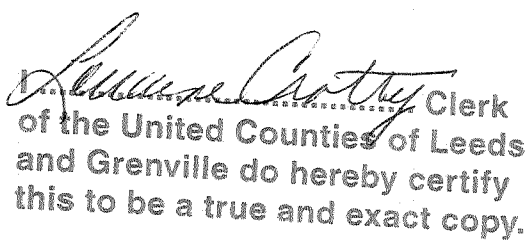 I Lorraine Crotty Clerk
of the United Counties of Leeds
and Grenville do hereby certify
this to be a true and exact copy.